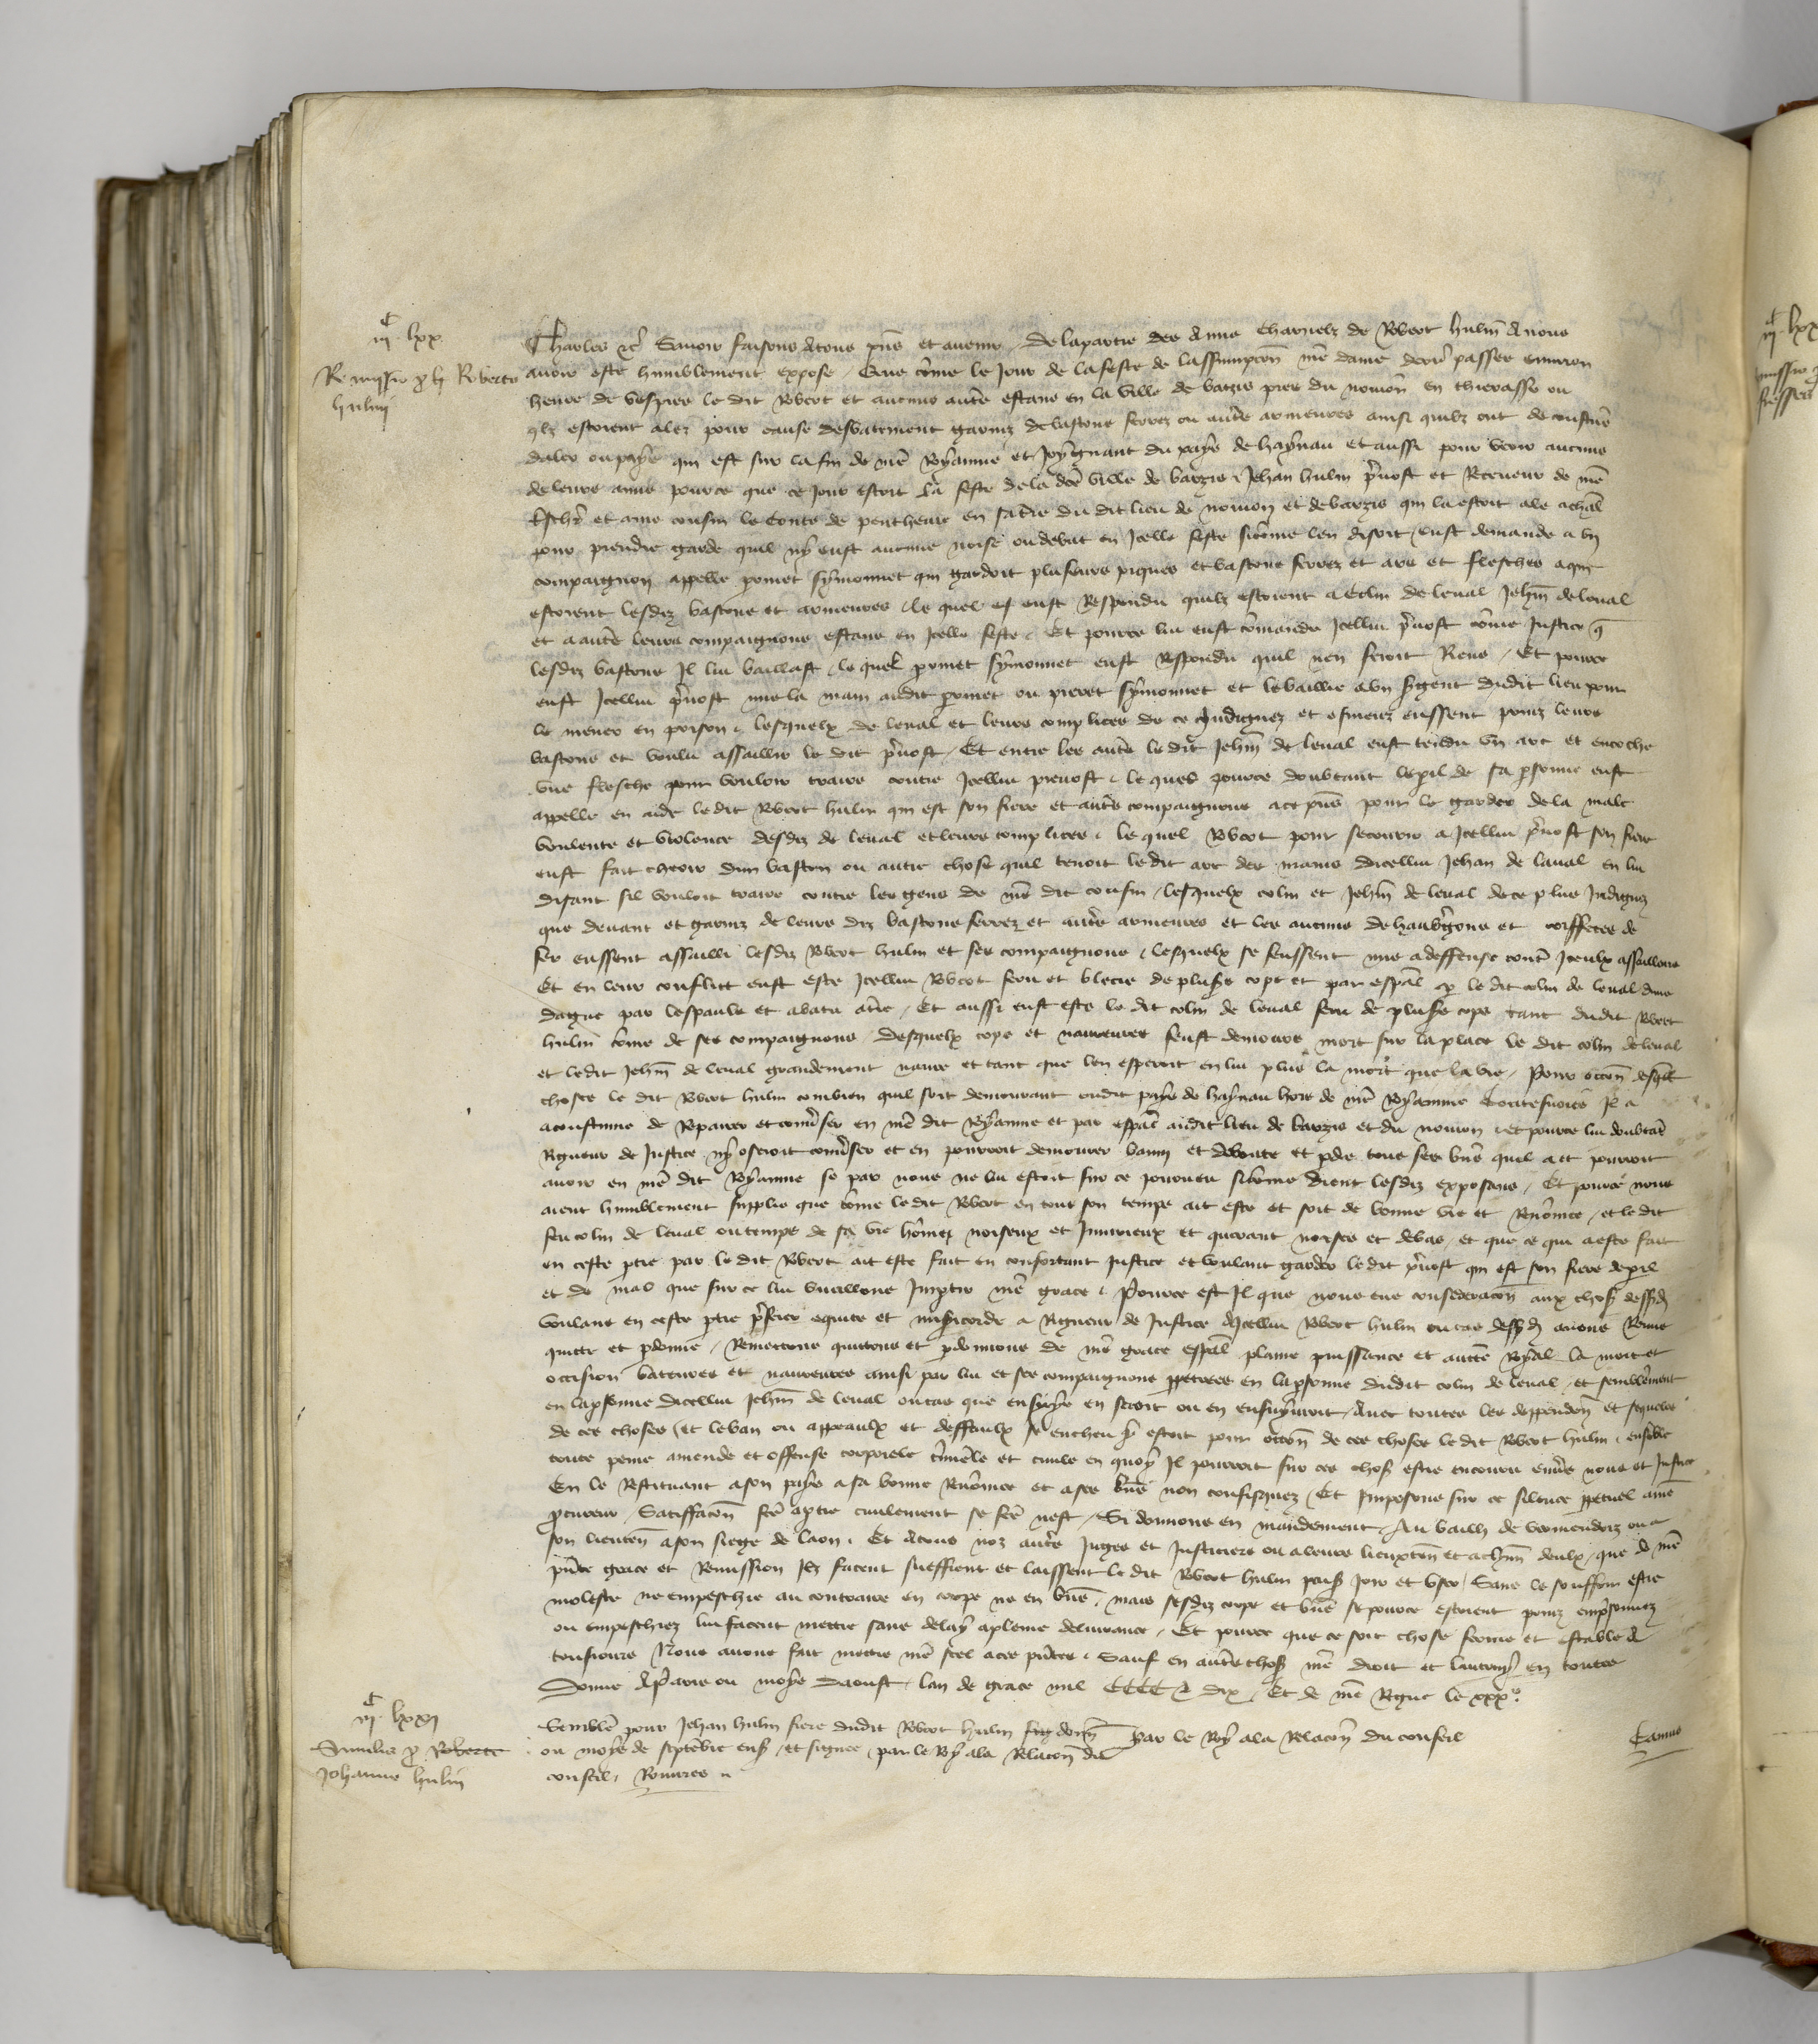 iii c lxx
Remissio p Roberto
hulin
Charles etc Savoir faisons Atous pns et avenir De lapartie des Amis Charnelz de Robert hulin Anous
avoir este humblement expose Que come le Jour de lafeste de lassumpcon nre dame derr passee environ
heure de vespres le dit Robert et aucuns autres estans en la ville de barzis pres du novion en thierasse ou
qlz estoient alez pour cause desbatement garniz debastons ferrez ou autres armeures ainsi quilz ont de coustume
daler oupays qui est sur lafin de nre Royaume et Joygnant du pays de haynau et aussi pour veoir aucuns
deleurs amis pource que ce jour estoit la feste dela dce ville de barzis Jehan hulin prevost et Receveur de nre
treschr et ame cousin le Conte de penthevre en sa terre du dit lieu de novion et debarzis qui la estoit ale
pour prendre garde quil ny eust aucune noise ou debat en Icelle feste sicome len disoit Eust demande a un
compaignon appelle symonnet qui gardoit pluseurs piques et bastons ferrez et ars et flesches aqui
estoient lesdiz bastons et armeures le quel eust Respondu quilz estoient a Colin de leval Jehan deleval
et a autres leurs compaignons estans en Icelle feste Et pource lui eust comande Icellui prevost come Justice q
lesdiz bastons Il lui baillast le quel symonnet eust Respondu quil nen feroit Riens Et pource
eust Icellui prevost mis la main audit ou symonnet et lebaille a un sergent dudit lieu pour
le mener en prison lesquelx de leval et leurs complices de ce Indignez et esmeuz eussent prins leurs
bastons et voulu assaillir le dit prevost Et entre les autres le dit Jehan de leval eust tendu un arc et encoche
une flesche pour vouloir traire contre Icellui prevost le quel pource doubtant le peril de sa personne eust
appelle en aide ledit Robert hulin qui est son frere et autres compaignons a ce pns pour le garder dela male
voulente et violence desdiz de leval et leurs complices le quel Robert pour secourir a Icellui prevost son frere
eust fait cheoir dun baston ou autre chose quil tenoit le dit arc des mains dicellui Jehan de laval en lui
disant sil vouloit traire contre les gens de nre dit cousin lesquelx colin et Jehan de leval de ce plus Indignez
que devant et garniz de leurs diz bastons ferrez et autres armeures et les aucuns de haubergons et de
fer eussent assailli lesdiz Robert hulin et ses compaignons lesquelx se feussent mis adeffense contre Iceulx assaillans
Et en leur conflict eust este Icellui Robert feru et blecie de pluss cops et par espal p le dit colin de leval dune
dague par lespaule et abatu a terre Et aussi eust este le dit colin de leval feru de pluss cops tant dudit Robert
hulin come de ses compaignons Desquelx cops et navreures feust demoure mort sur la place le dit colin deleval
et ledit Jehan de leval grandement navre et tant que len esperoit en lui plus la mort que la vie Pour occon desqles
choses le dit Robert hulin combien quil soit demourant oudit pays de haynau hors de nre Royaume toutesvoies Il a
acoustume de Reparer et converser en nre dit Royaume et par espal audit lieu de barzis et du novion et pource lui doubtant
Rigueur de Justice ny oseroit converser et en pourroit demourer banni et et pdre tous ses biens quil a et pourroit
avoir en nre dit Royaume se par nous ne lui estoit sur ce pourveu sicome dient lesdiz exposans Et pource nous
aient humblement supplie que come le dit Robert en tout son temps ait este et soit de bonne vie et Renomee et le dit
feu colin de leval ou temps de sa vie homez noiseux et Injurieux et querant noises et debas et que ce qui a este fait
en ceste ptie par le dit Robert ait este fait en confortant Justice et voulant garder le dit prevost qui est son frere de peril
et de mal que sur ce lui vueillons Impartir nre grace Pource est Il que nous eue consideracon aux choses dessusd
voulans en ceste ptie preferer equite et misericorde a Rigueur de Justice A Icellui Robert hulin ou cas dessusd avons Remis
quitte et pdonne Remettons quittons et pdonnons de nre grace espal plaine puissance et auctte Royal la mort et
occision bateures et navreures ainsi par lui et ses compaignons ppetrees en la psonne dudit colin de leval et semblement
en lapsonne dicellui Jehan de leval ou cas que en seroit ou en ensuyvroit Avec toutes les deppendences et sequeles
de ces choses Et le ban ou appeaulx et deffaulx se encheu y estoit pour occon de ces choses le dit Robert hulin ensemble
toute peine amende et offense corporele criminele et civile en quoy Il pourroit sur ces choses estre encouru envers nous et Justice
En le Restituant a son pays a sa bonne Renomee et a ses biens non confisquez Et Imposons sur ce silence ppetuel a nre
pcureur Satiffacon fce a ptie civilement se fce nest Si donnons en mandement Au bailli de vermendois ou a
son lieutent a son siege de laon Et Atous noz autres Juges et Justiciers ou a leurs lieuxtens et achun deulx que de nre
pnte grace et Remission Ilz facent sueffrent et laissent le dit Robert hulin paisiblement Joir et user Sans le souffrir estre
moleste ne empeschie au contraire en corps ne en biens mais sesdiz corps et biens se pource estoient prins emprisonnez
ou empeschiez lui facent mettre sans delay a pleine delivrance Et pource que ce soit chose ferme et estable A
tousjours Nous avons fait mettre nre scel a ces pntes Sauf en autres choses nre droit et lautruy en toutes
Donne A paris ou moys Daoust lan de grace mil CCCC et dix Et de nre Regne le xxxe
Par le Roy ala Relacon du conseil
Camus
vi c lxxi
Similis p Roberto
Johanne hulin
Semble pour Jehan hulin frere dudit Robert hulin
ou moys de septembre ens et signee par le Roy ala Relacon du
conseil